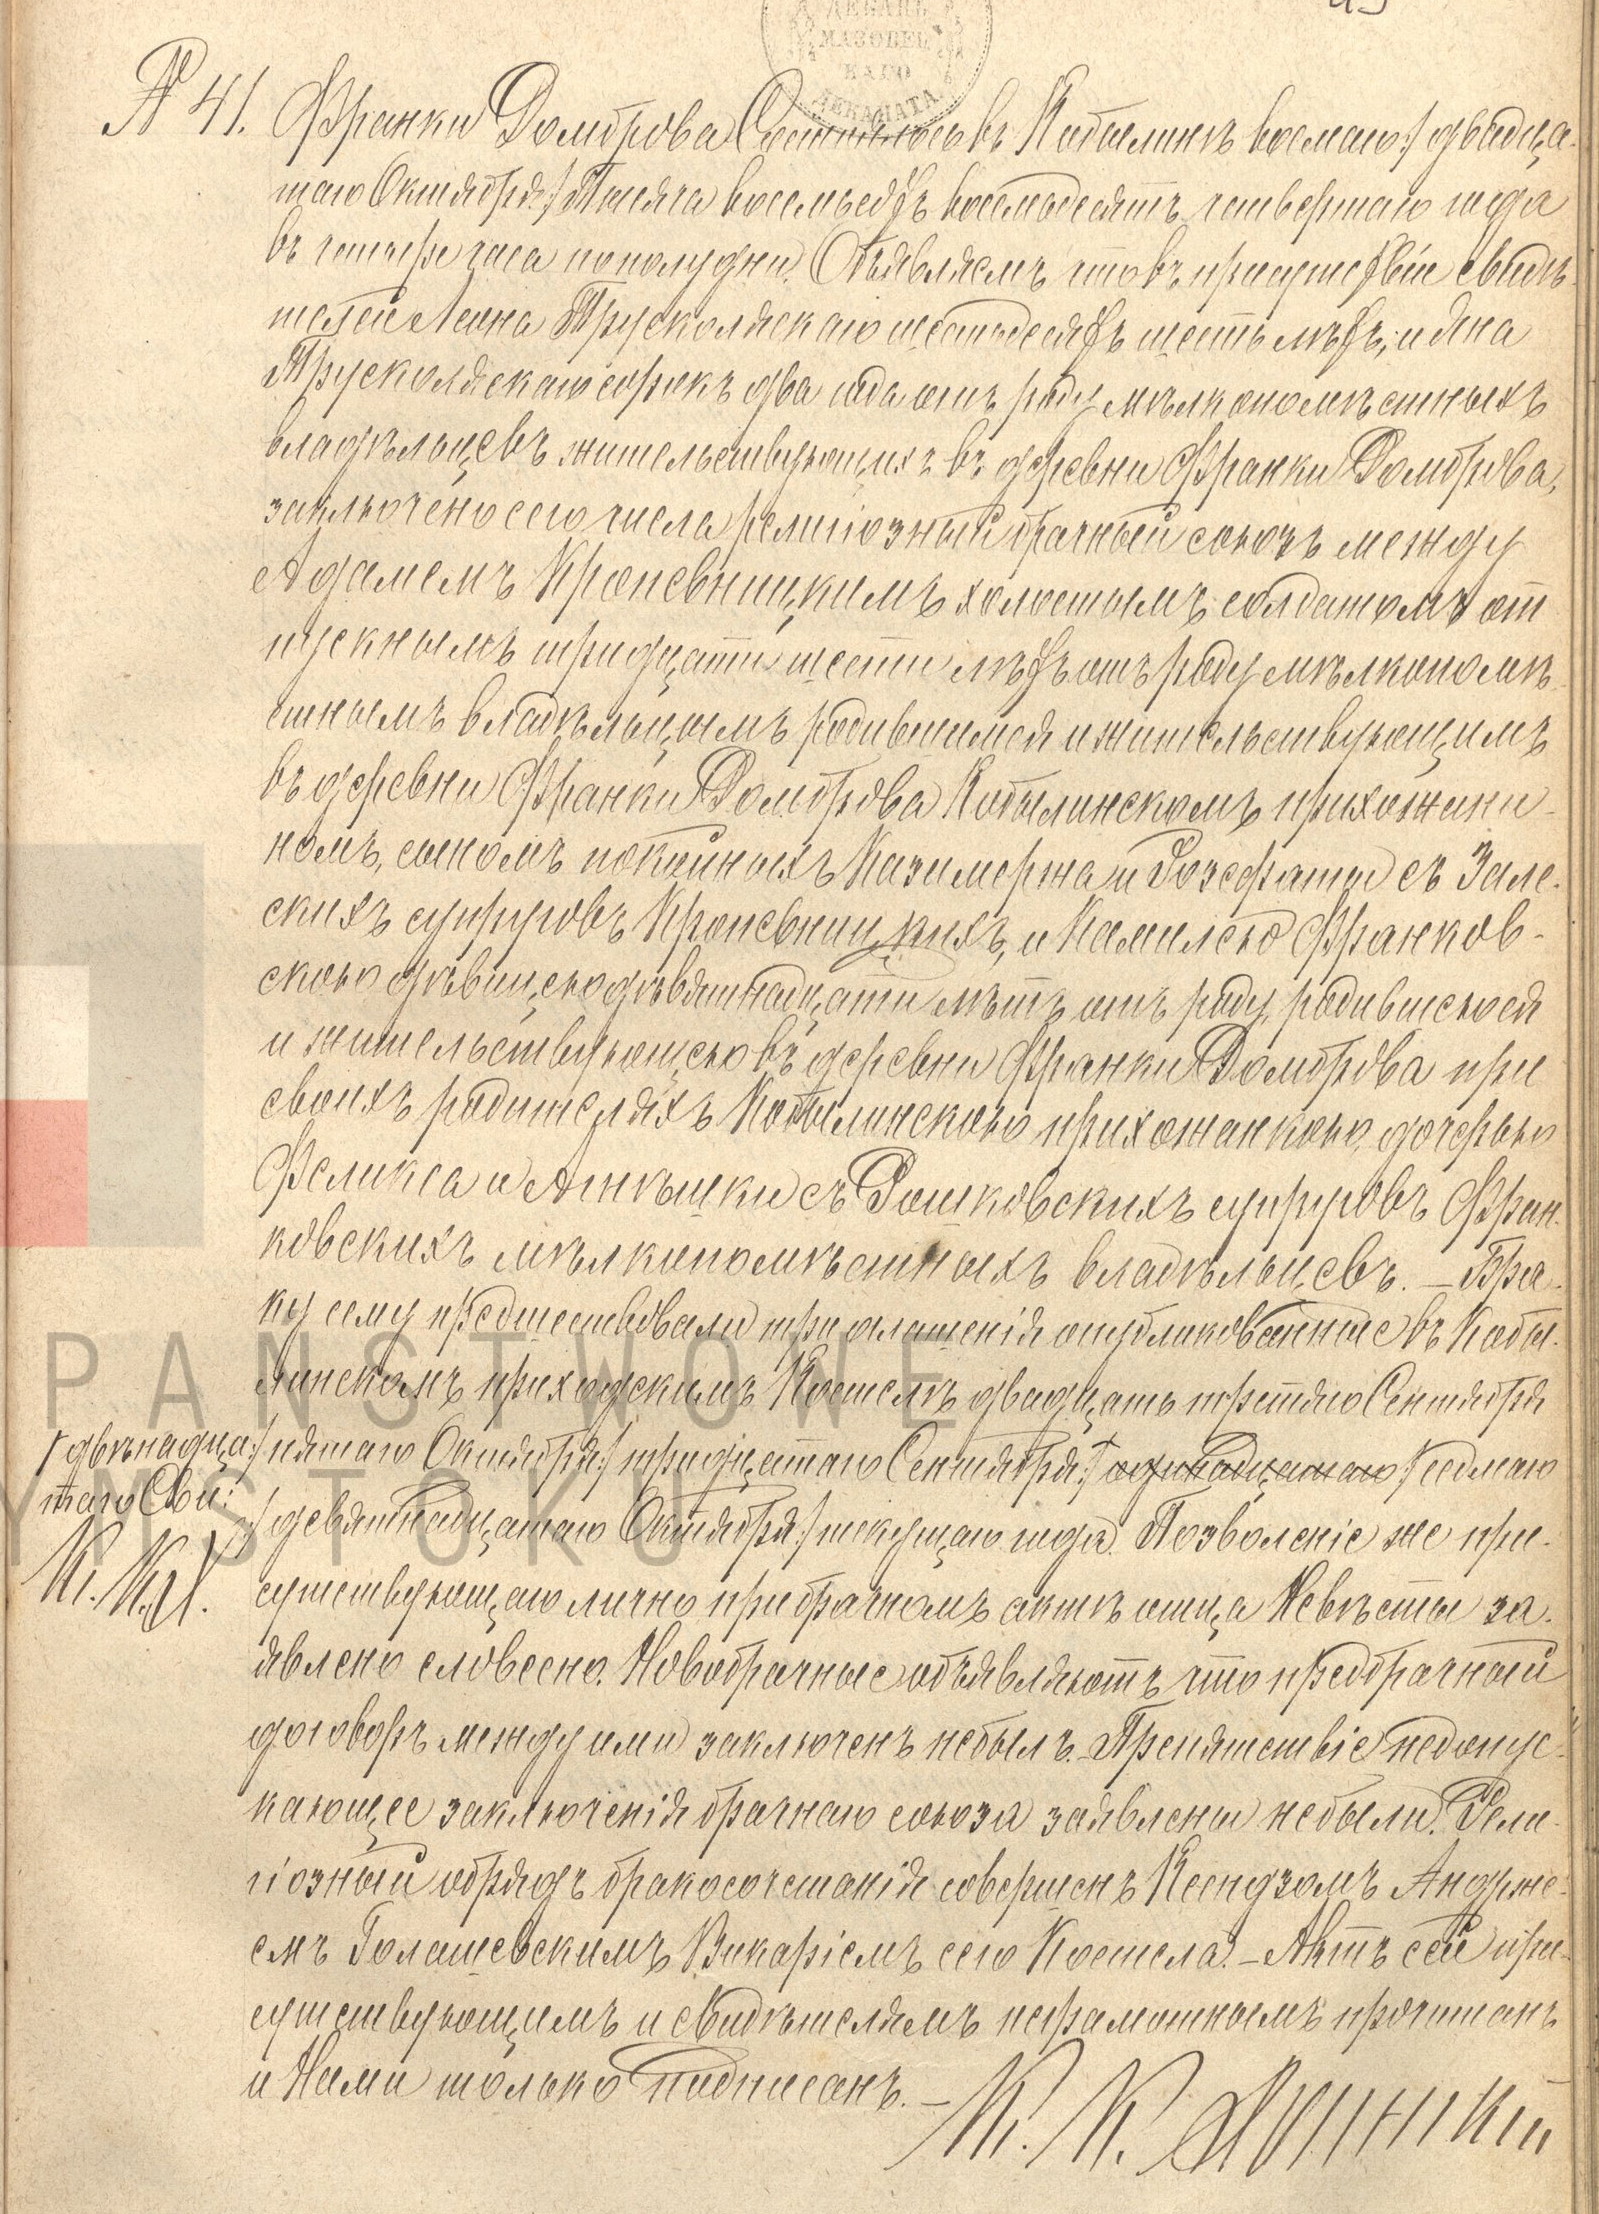 ДЕКАНЪ
МАЗОВЕЦ
КАГО
ДЕКАНАТА
№ 41. Франки Домброва Состоялось въ Кобылинѣ восмаго /: двадца-
таго Октября :/ тысяча восемьсотъ восемьдесятъ четвертаго года
въ четыре часа пополудни. Объявляемъ что въ присутствіи свидѣ-
телей Трусколяскаго шестьдесятъ шесть лѣтъ, и Яна
Трусколяскаго сорокъ два года отъ роду мѣлкопомѣстныхъ
владѣльцевъ жительствующихъ въ деревни Франки Домброва,
заключено сего числа религіозный брачный союзъ между
Адамемъ Кропевницкимъ холостымъ солдатомъ от
пускнымъ тридцати шести лѣтъ отъ роду мѣлкопомѣ
стнымъ владѣльцымъ родившимся и жительствующимъ
въ деревни Франки Домброва Кобылинскомъ прихожани-
номъ, сыномъ покойныхъ Казимержа и Розефаты съ Зале-
скихъ супруговъ Кропевницкихъ, и Камилею Франков-
скою дѣвицею дѣвятнадцати лѣтъ отъ роду, родившеюся
и жительствующею въ деревни Франки Домброва при
своихъ родителяхъ Кобылинскою прихожанкою, дочерью
Феликса и Агнѣшки съ Рошковскихъ супруговъ Фран-
ковскихъ мѣлкопомѣстныхъ владѣльцевъ. – Бра-
ку сему предшествовали три оглашенія опубликованные въ Кобы-
линскомъ приходскимъ Костелѣ двадцать третяго Сентября
/: пятаго Октября :/ тридцатаго Сентября /: одинадцатаго / седмаго
/ двѣнадца-
таго Окт:
К. К. Л.
/: девятнадцатаго Октября :/ текущаго года. Позволеніе же при-
сутствующаго лично при брачномъ актѣ отца Невѣсты за-
явлено словесно. Новобрачные объявляютъ что предбрачный
договоръ между ими заключенъ небылъ. – Препятствіе недопус-
кающее заключенія брачнаго союза заявлены небыли. Рели-
гіозный обрядъ бракосочетанія совершенъ Ксендзомъ Андрже-
емъ Голашевскимъ Викаріемъ сего Костела. – Актъ сей при-
сутствующимъ и свидѣтелямъ неграмотнымъ прочитанъ
и Нами только подписанъ. –
К. К.
PAŃSTWOWE
YMSTOKU